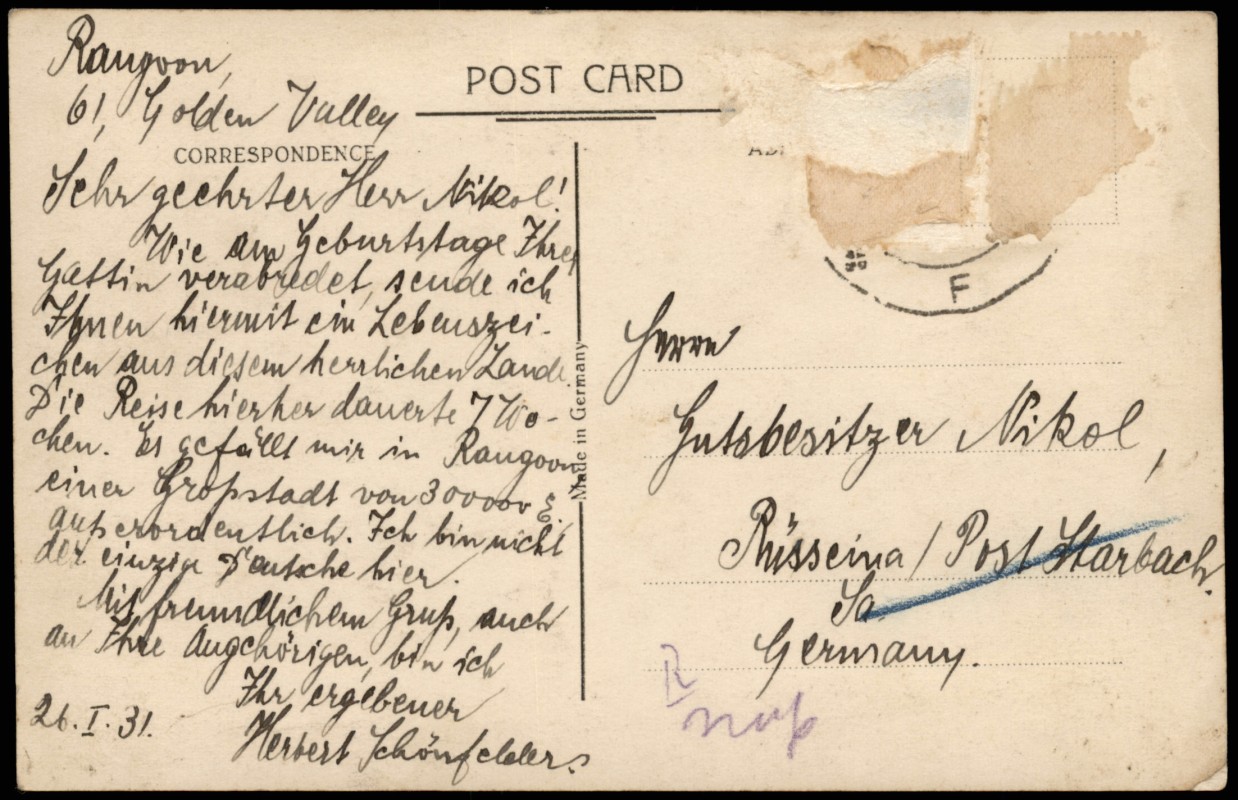 Rangoon,
61, Golden Valley
POST CARD
CORRESPONDENCE
Sehr geehrter Herr Nikol!
Wie am Geburtstage Ihrer
Gattin verabredet, sende ich
Ihnen hiermit ein Lebenszei-
chen aus diesem herrlichen Lande.
Die Reise hierher dauerte 7 Wo-
chen. Es gefällt mir in Rangoon,
einer Großstadt von 300000 E.
außerordentlich. Ich bin nicht
der einzige Deutsche hier.
Mit freundlichem Gruß, auch
an Ihre Angehörigen, bin ich
Ihr ergebener
26.I.31.
Herbert Schönfelder.
Made in Germany
F
Herrn
Gutsbesitzer Nikol,
Rüsseina / Post Starbach.
Sa
Germany.
R